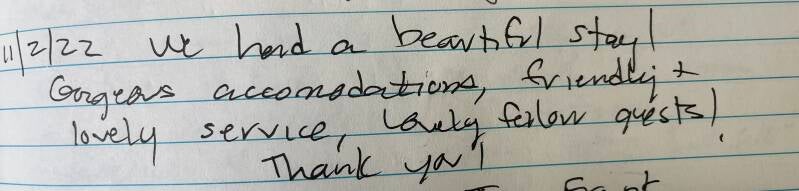 11/2/22 We had a beautiful stay!
Gorgeous accomodations, friendly +
lovely service, lovely fellow guests!
Thank you!